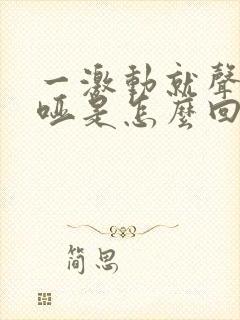 一激動就聲
啞是怎麼回
簡思